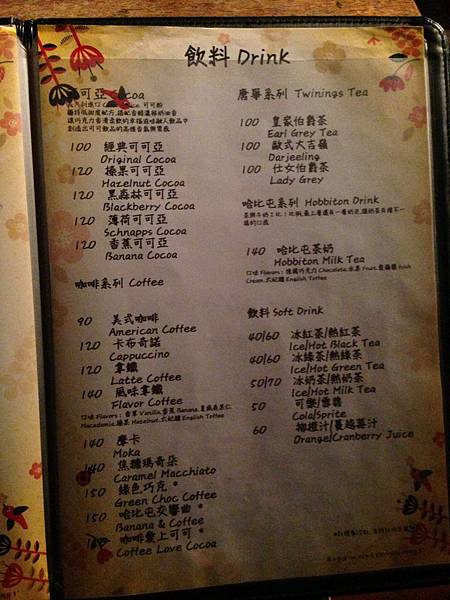 飲料 Drink
可亞 Cocoa
100 經典可可亞
Original Cocoa
120 榛果可可亞
Hazelnut Cocoa
120 黑森林可可亞
Blackberry Cocoa
120 薄荷可可亞
Schnapps Cocoa
120 香蕉可可亞
Banana Cocoa
咖啡系列 Coffee
90 美式咖啡
American Coffee
120 卡布奇諾
Cappuccino
120 拿鐵
Latte Coffee
140 風味拿鐵
Flavor Coffee
口味 Flavors: 香草 Vanilla 香蕉 Banana 夏威夷果仁
Macadamia 榛果 Hazelnut 太妃糖 English Toffee
140 摩卡
Moka
140 焦糖瑪奇朵
Caramel Macchiato
150 綠色巧克 *
Green Choc Coffee
150 哈比屯交響曲 *
Banana & Coffee
咖啡愛上可可 *
Coffee Love Cocoa
唐寧系列 Twinings Tea
100 皇家伯爵茶
Earl Grey Tea
100 歐式大吉嶺
Darjeeling
100 仕女伯爵茶
Lady Grey
哈比屯系列 Hobbiton Drink
140 哈比屯茶奶
Hobbiton Milk Tea
口味 Flavors: 巧克力 Chocolate 水果 Fruit Irish
Cream 太妃糖 English Toffee
飲料 Soft Drink
40/60 冰紅茶/熱紅茶
Ice/Hot Black Tea
40/60 冰綠茶/熱綠茶
Ice/Hot Green Tea
50/70 冰奶茶/熱奶茶
Ice/Hot Milk Tea
50 可樂/雪碧
Cola/Sprite
60 柳橙汁/蔓越莓汁
Orange/Cranberry Juice